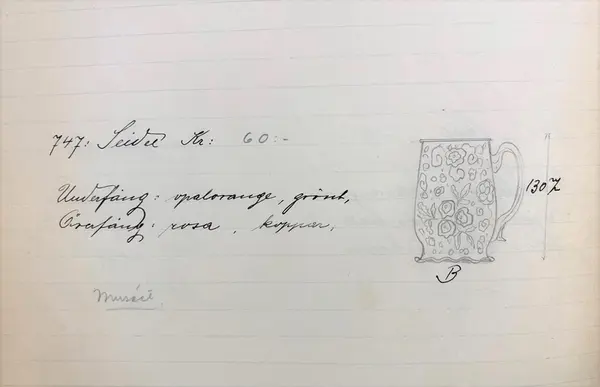 747: Seidel Kr: 60:-
Underfång: opalorange, grönt,
Överfång: rosa, koppar,
130 %
B